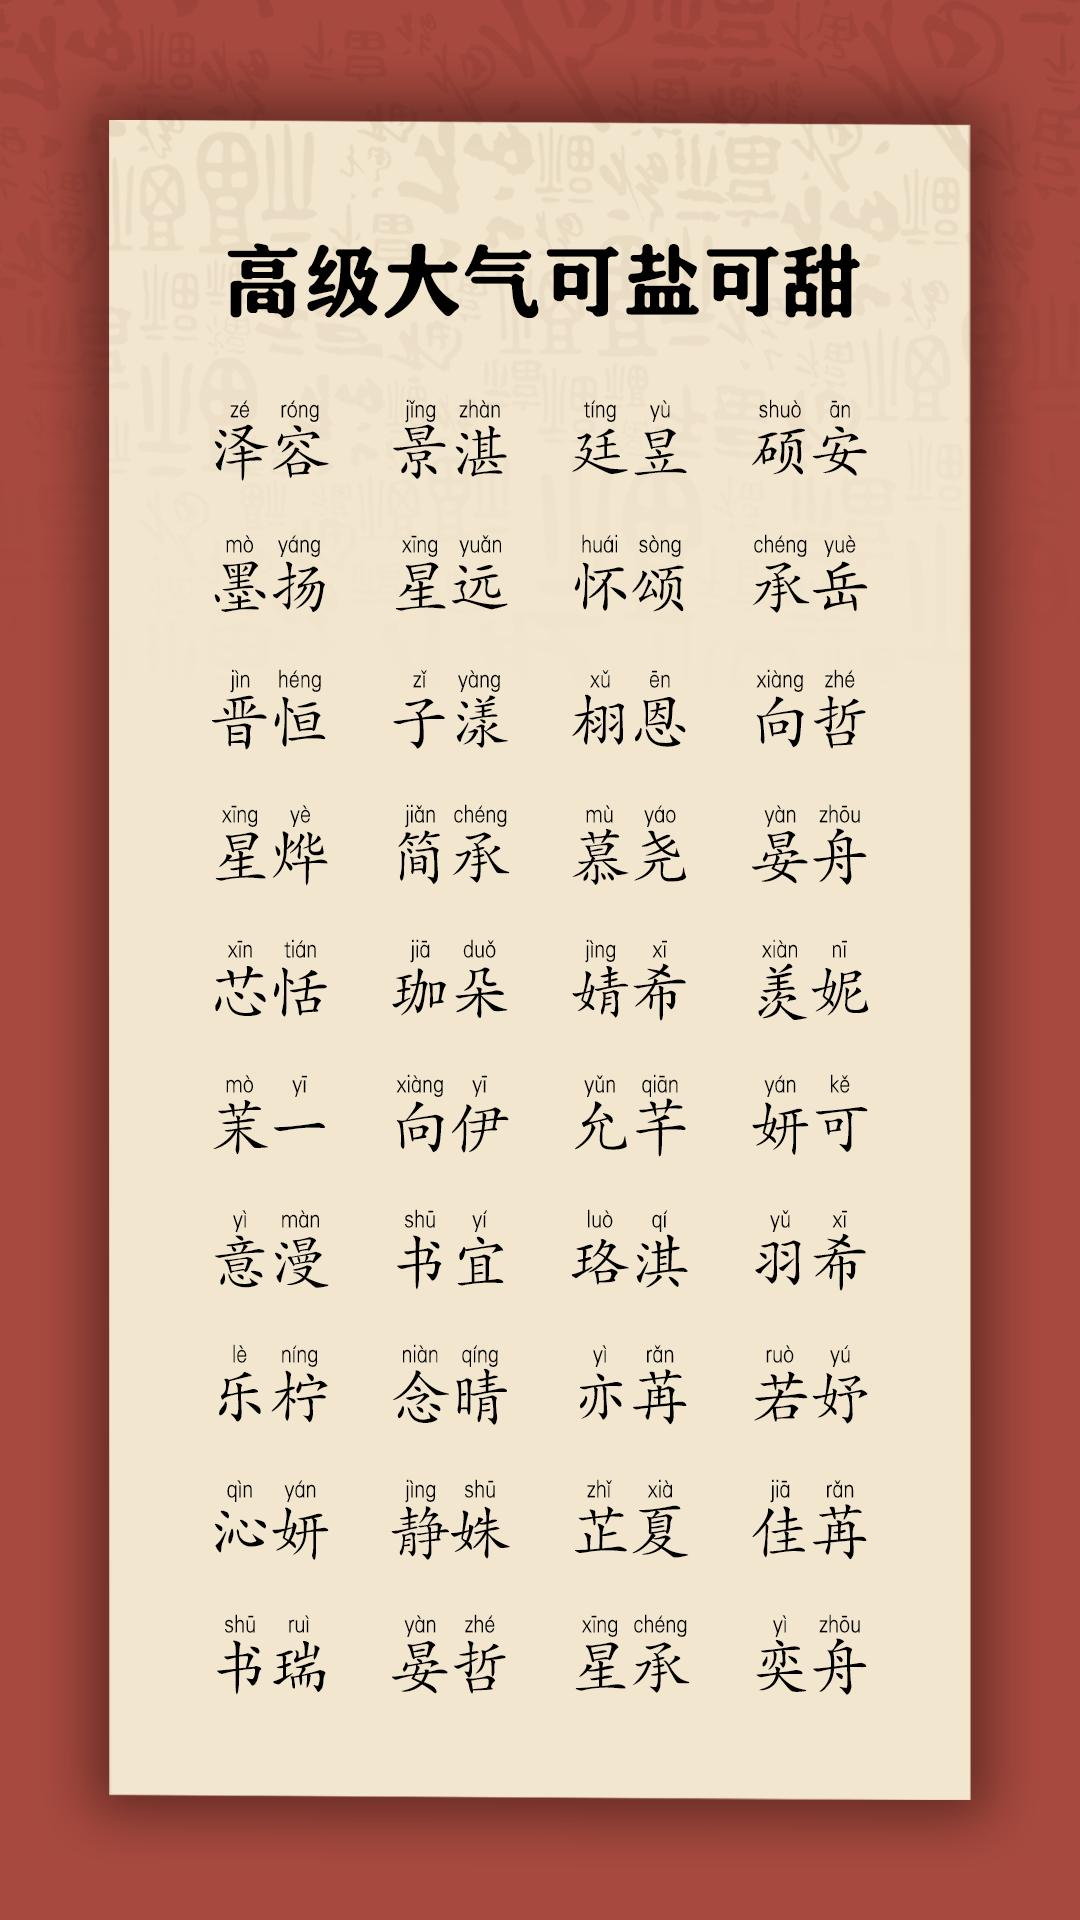 高级大气可盐可甜
zé róng jǐng zhàn tíng yù shuò ān
泽容 景湛 廷昱 硕安
mò yáng xīng yuǎn huái sòng chéng yuè
墨扬 星远 怀颂 承岳
jìn héng zǐ yàng xǔ ēn xiàng zhé
晋恒 子漾 栩恩 向哲
xīng yè jiǎn chéng mù yáo yàn zhōu
星烨 简承 慕尧 晏舟
xīn tián jiā duǒ jìng xī xiàn nī
芯恬 珈朵 婧希 羡妮
mò yī xiàng yī yǔn qiān yán kě
茉一 向伊 允芊 妍可
yì màn shū yí luò qí yǔ xī
意漫 书宜 珞淇 羽希
lè níng niàn qíng yì rǎn ruò yú
乐柠 念晴 亦苒 若妤
qìn yán jìng shū zhǐ xià jiā rǎn
沁妍 静姝 芷夏 佳苒
shū ruì yàn zhé xīng chéng yì zhōu
书瑞 晏哲 星承 奕舟